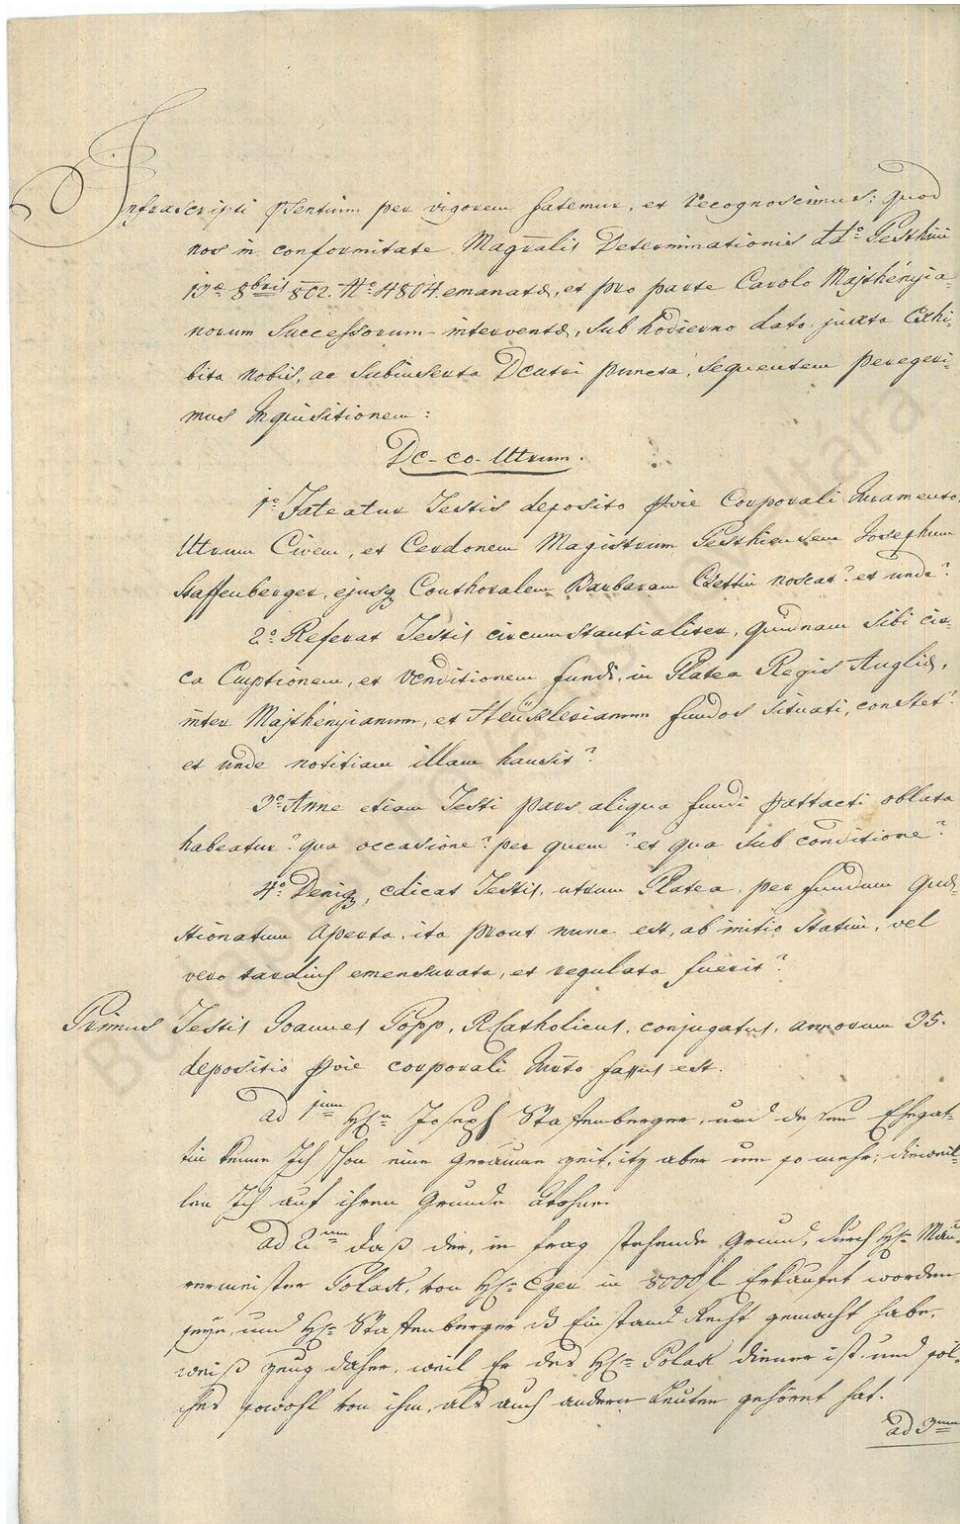 Infrascripti pſentium per vigorem fatemur, et recognoscimus; quod
nos in conformitate Magr̄alis Determinationis ddo Pesthini
8bris 802. No 4804. emanatæ, et pro parte Carolo Majthényia-
norum Successorum interventæ, sub hodierno dato juxta Exhi-
bita nobis, ac subinserta Deutri puncta, sequentem peregeri-
mus Inquisitionem:
De eo Utrum.
1o Fateatur Testis deposito pſvie Corporali Juramento,
Utrum Civem, et Cerdonem Magistrum Pesthiensem Josephum
Staffenberger, ejusq Conthoralem Barbaram noscat? et unde?
2o Referat Testis circumstantialiter, quidnam sibi cir-
ca Emptionem, et Venditionem fundi, in Platea Regis Angliæ,
inter Majthényianum, et fundos situati, constet?
et unde notitiam illam hausit?
3o Anne etiam Testi pars aliqua fundi pſattacti oblata
habeatur? qua occasione? per quem? et qua sub conditione?
4o Deniq, edicat Testis, utrum Platea per fundum quæ-
stionatum aperta, ita prout nunc est, ab initio statim, vel
vero tardius emensurata, et regulata fuerit?
Primus Testis Joannes Popp, R. Catholicus, conjugatus, annorum 35.
deposito pſvie corporali Jurto fassus est.
ad 1mum H̄rn Joseph Staffenberger, und dessen Ehegat-
tin kenne Ich schon eine geraume zeit, itz aber um so mehr; dieweil-
len Ich auf ihren Grunde wohne.
ad 2dum daß der, in frag stehende Grund, durch H̄r Mau-
rermeister Polak, von H̄r Eger in 8000 fl erkaufet worden
seye, und H̄r Staffenberger Einstands Recht gemacht habe,
weiß zeug daher, weil Er des H̄r Polak diener ist, und sol-
ches sowohl von ihm, als auch andern Leuten gehöret hat.
ad 3um